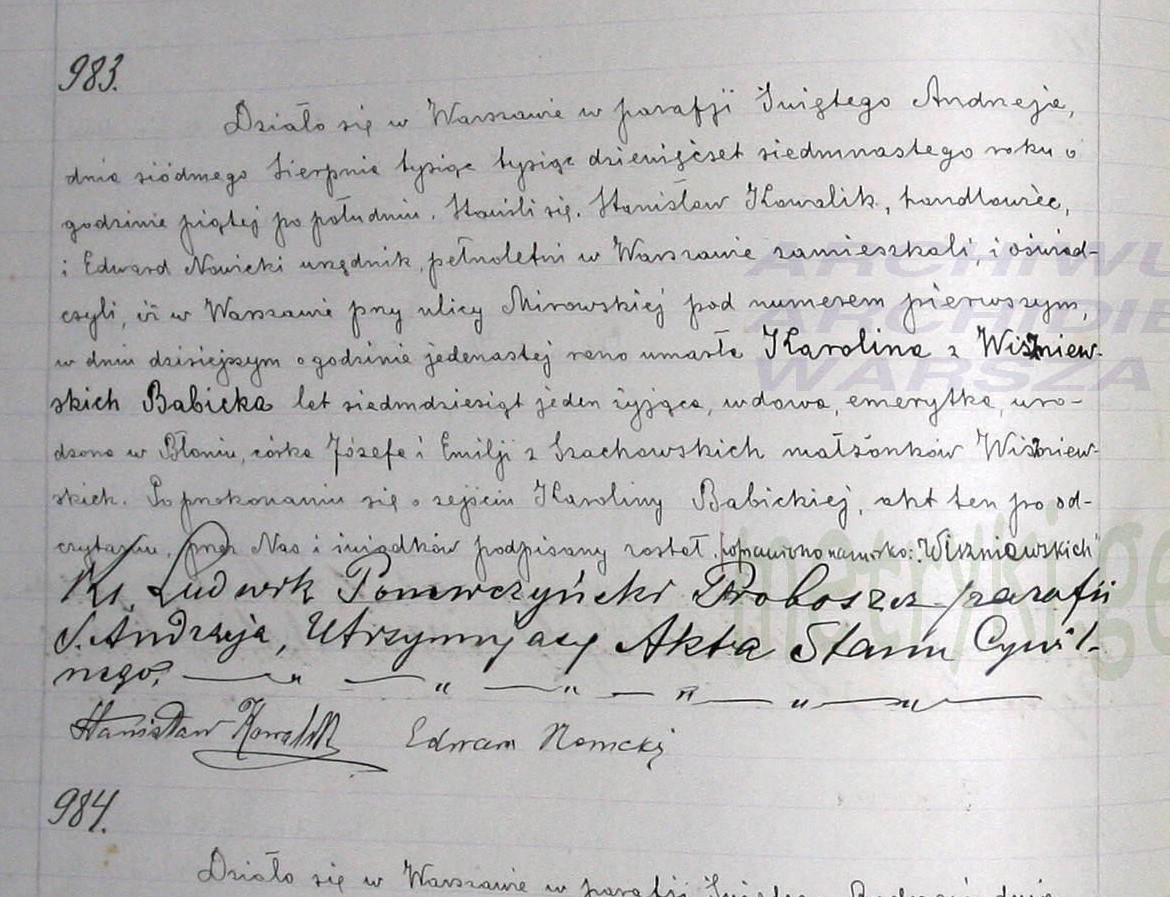 983.
Działo się w Warszawie w parafji Świętego Andrzeja,
dnia siódmego Sierpnia tysiąc tysiąc dziewięćset siedmnastego roku o
godzinie piątej po południu. Stawili się. Stanisław Kowalik, handlowiec,
i Edward Nowicki urzędnik, pełnoletni w Warszawie zamieszkali, i oświad-
czyli, iż w Warszawie przy ulicy Mirowskiej pod numerem pierwszym,
w dniu dzisiejszym o godzinie jedenastej rano umarła Karolina z Wiszniew-
skich Babicka lat siedmdziesiąt jeden żyjąca, wdowa, emerytka, uro-
dzona w Błoniu, córka Józefa i Emilji z Szachowskich małżonków Wiszniew-
skich. Po przekonaniu się o zejściu Karoliny Babickiej, akt ten po od-
czytaniu, przez Nas i świadków podpisany został. poprawiono nazwisko: "Wiszniewskich"
Ks. Ludwik Proboszcz parafii
S. Andrzeja, Utrzymujący Akta Stanu Cywil-
nego.
Stanisław Kowalik Edward Nowicki
984.
Działo się w Warszawie w parafji Świętego Andrzeja dnia
ARCHIWU
ARCHIDIE
WARSZA
metryki.ge